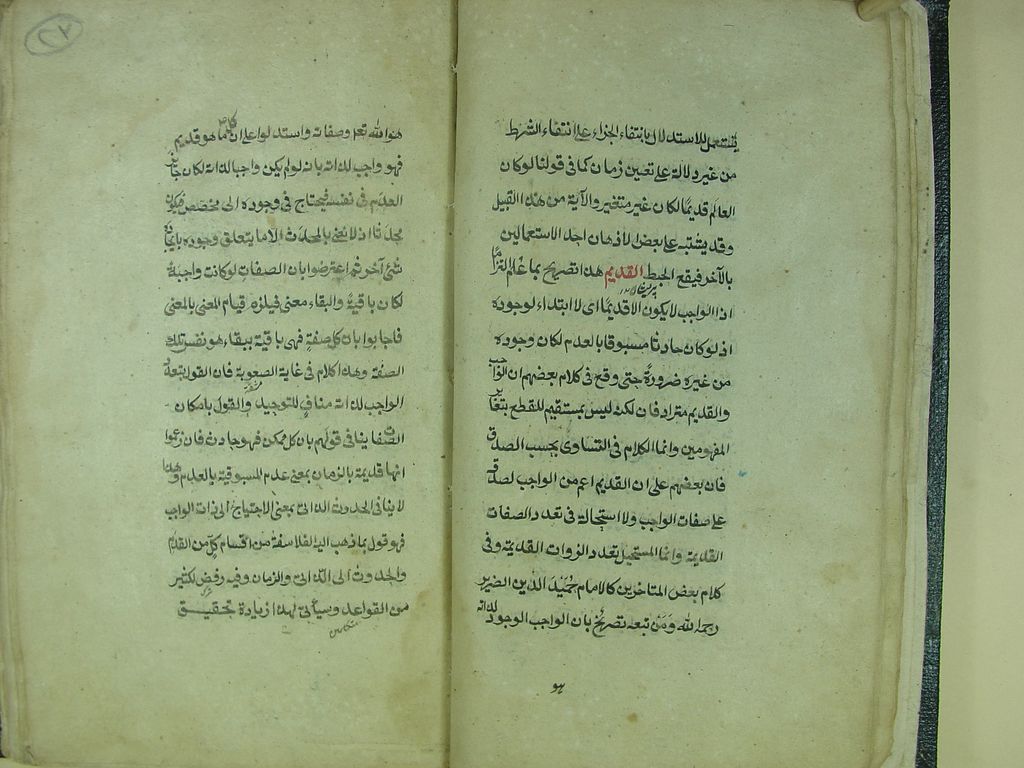 يستعمل للاستدلال بانتفاء الجزاء على انتفاء الشرط
من غير دلالة على تعيين زمان كما في قولنا لو كان
العالم قديما لكان غير متغير والآية من هذا القبيل
وقد يشتبه على بعض الاذهان احد الاستعمالين
بالآخر فيقع الخبط القديم هذا تصريح بما علم التزاما
اذ الواجب لا يكون الا قديما اى لا ابتداء لوجوده
اذ لو كان حادثا مسبوقا بالعدم لكان وجوده
من غيره ضرورة حتى وقع في كلام بعضهم ان الواجب
والقديم مترادفان لكنه ليس بمستقيم للقطع بتغاير
المفهومين وانما الكلام في التساوى بحسب الصدق
فان بعضهم على ان القديم اعم من الواجب لصدقه
على صفات الواجب ولا استحالة في تعدد الصفات
القديمة وانما المستحيل تعدد الذوات القديمة وفى
كلام بعض المتاخرين كالامام حميد الدين الضرير
رحمه الله ومن تبعه تصريح بان الواجب الوجود لذاته
هو
هو الله تعالى وصفاته واستدلوا على ان كل ما هو قديم
فهو واجب لذاته بانه لو لم يكن واجبا لذاته لكان جائز
العدم في نفسه فيحتاج في وجوده الى مخصص فيكون
محدثا اذ لا نعنى بالمحدث الا ما يتعلق وجوده بايجاد
شئ آخر ثم اعترضوا بان الصفات لو كانت واجبة
لكان باقية والبقاء معنى فيلزم قيام المعنى بالمعنى
فاجابوا بان كل صفة فهى باقية ببقاء هو نفس تلك
الصفة وهذا كلام في غاية الصعوبة فان القول بتعدد
الواجب لذاته مناف للتوحيد والقول بامكان
الصفات ينافى قولهم بان كل ممكن فهو حادث فان زعموا
انها قديمة بالزمان بمعنى عدم المسبوقية بالعدم وهذا
لا ينافى الحدوث الذاتى بمعنى الاحتياج الى ذات الواجب
فهو قول بما ذهب اليه الفلاسفة من انقسام كل من القدم
والحدوث الى الذاتى والزمان وفيه رفض لكثير
من القواعد وسيأتى لهذا زيادة تحقيق